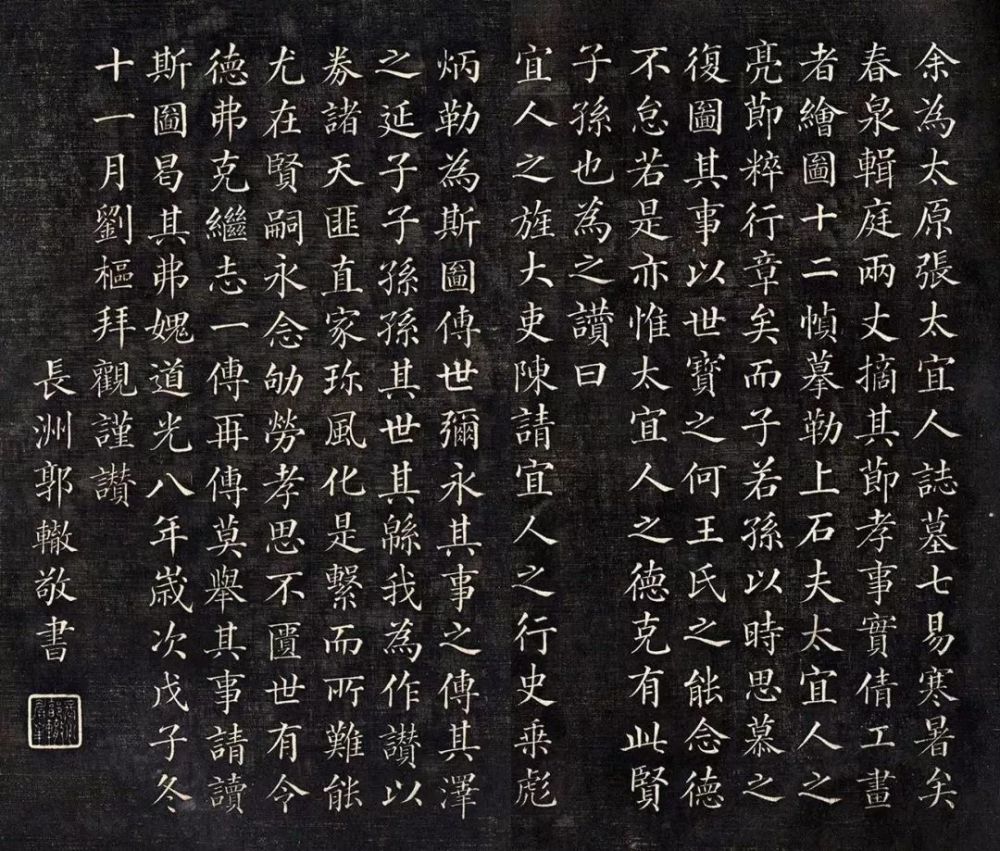 余為太原張太宜人誌墓七易寒暑矣
春泉輯庭兩丈摘其節孝事實倩工畫
者繪圖十二幀摹勒上石夫太宜人之
亮節粹行章矣而子若孫以時思慕之
復圖其事以世寶之何王氏之能念德
不怠若是亦惟太宜人之德克有此賢
子孫也為之讚曰
宜人之旌大吏陳請宜人之行史乗彪
炳勒為斯圖傳世彌永其事之傳其澤
之延子子孫孫其世其緜我為作讃以
劵諸天匪直家珎風化是繫而所難能
尤在賢嗣永念劬勞孝思不匱世有令
德弗克繼志一傳再傳莫舉其事請讀
斯圖曷其弗媿道光八年歲次戊子冬
十一月劉樞拜觀謹讃
長洲郭轍敬書